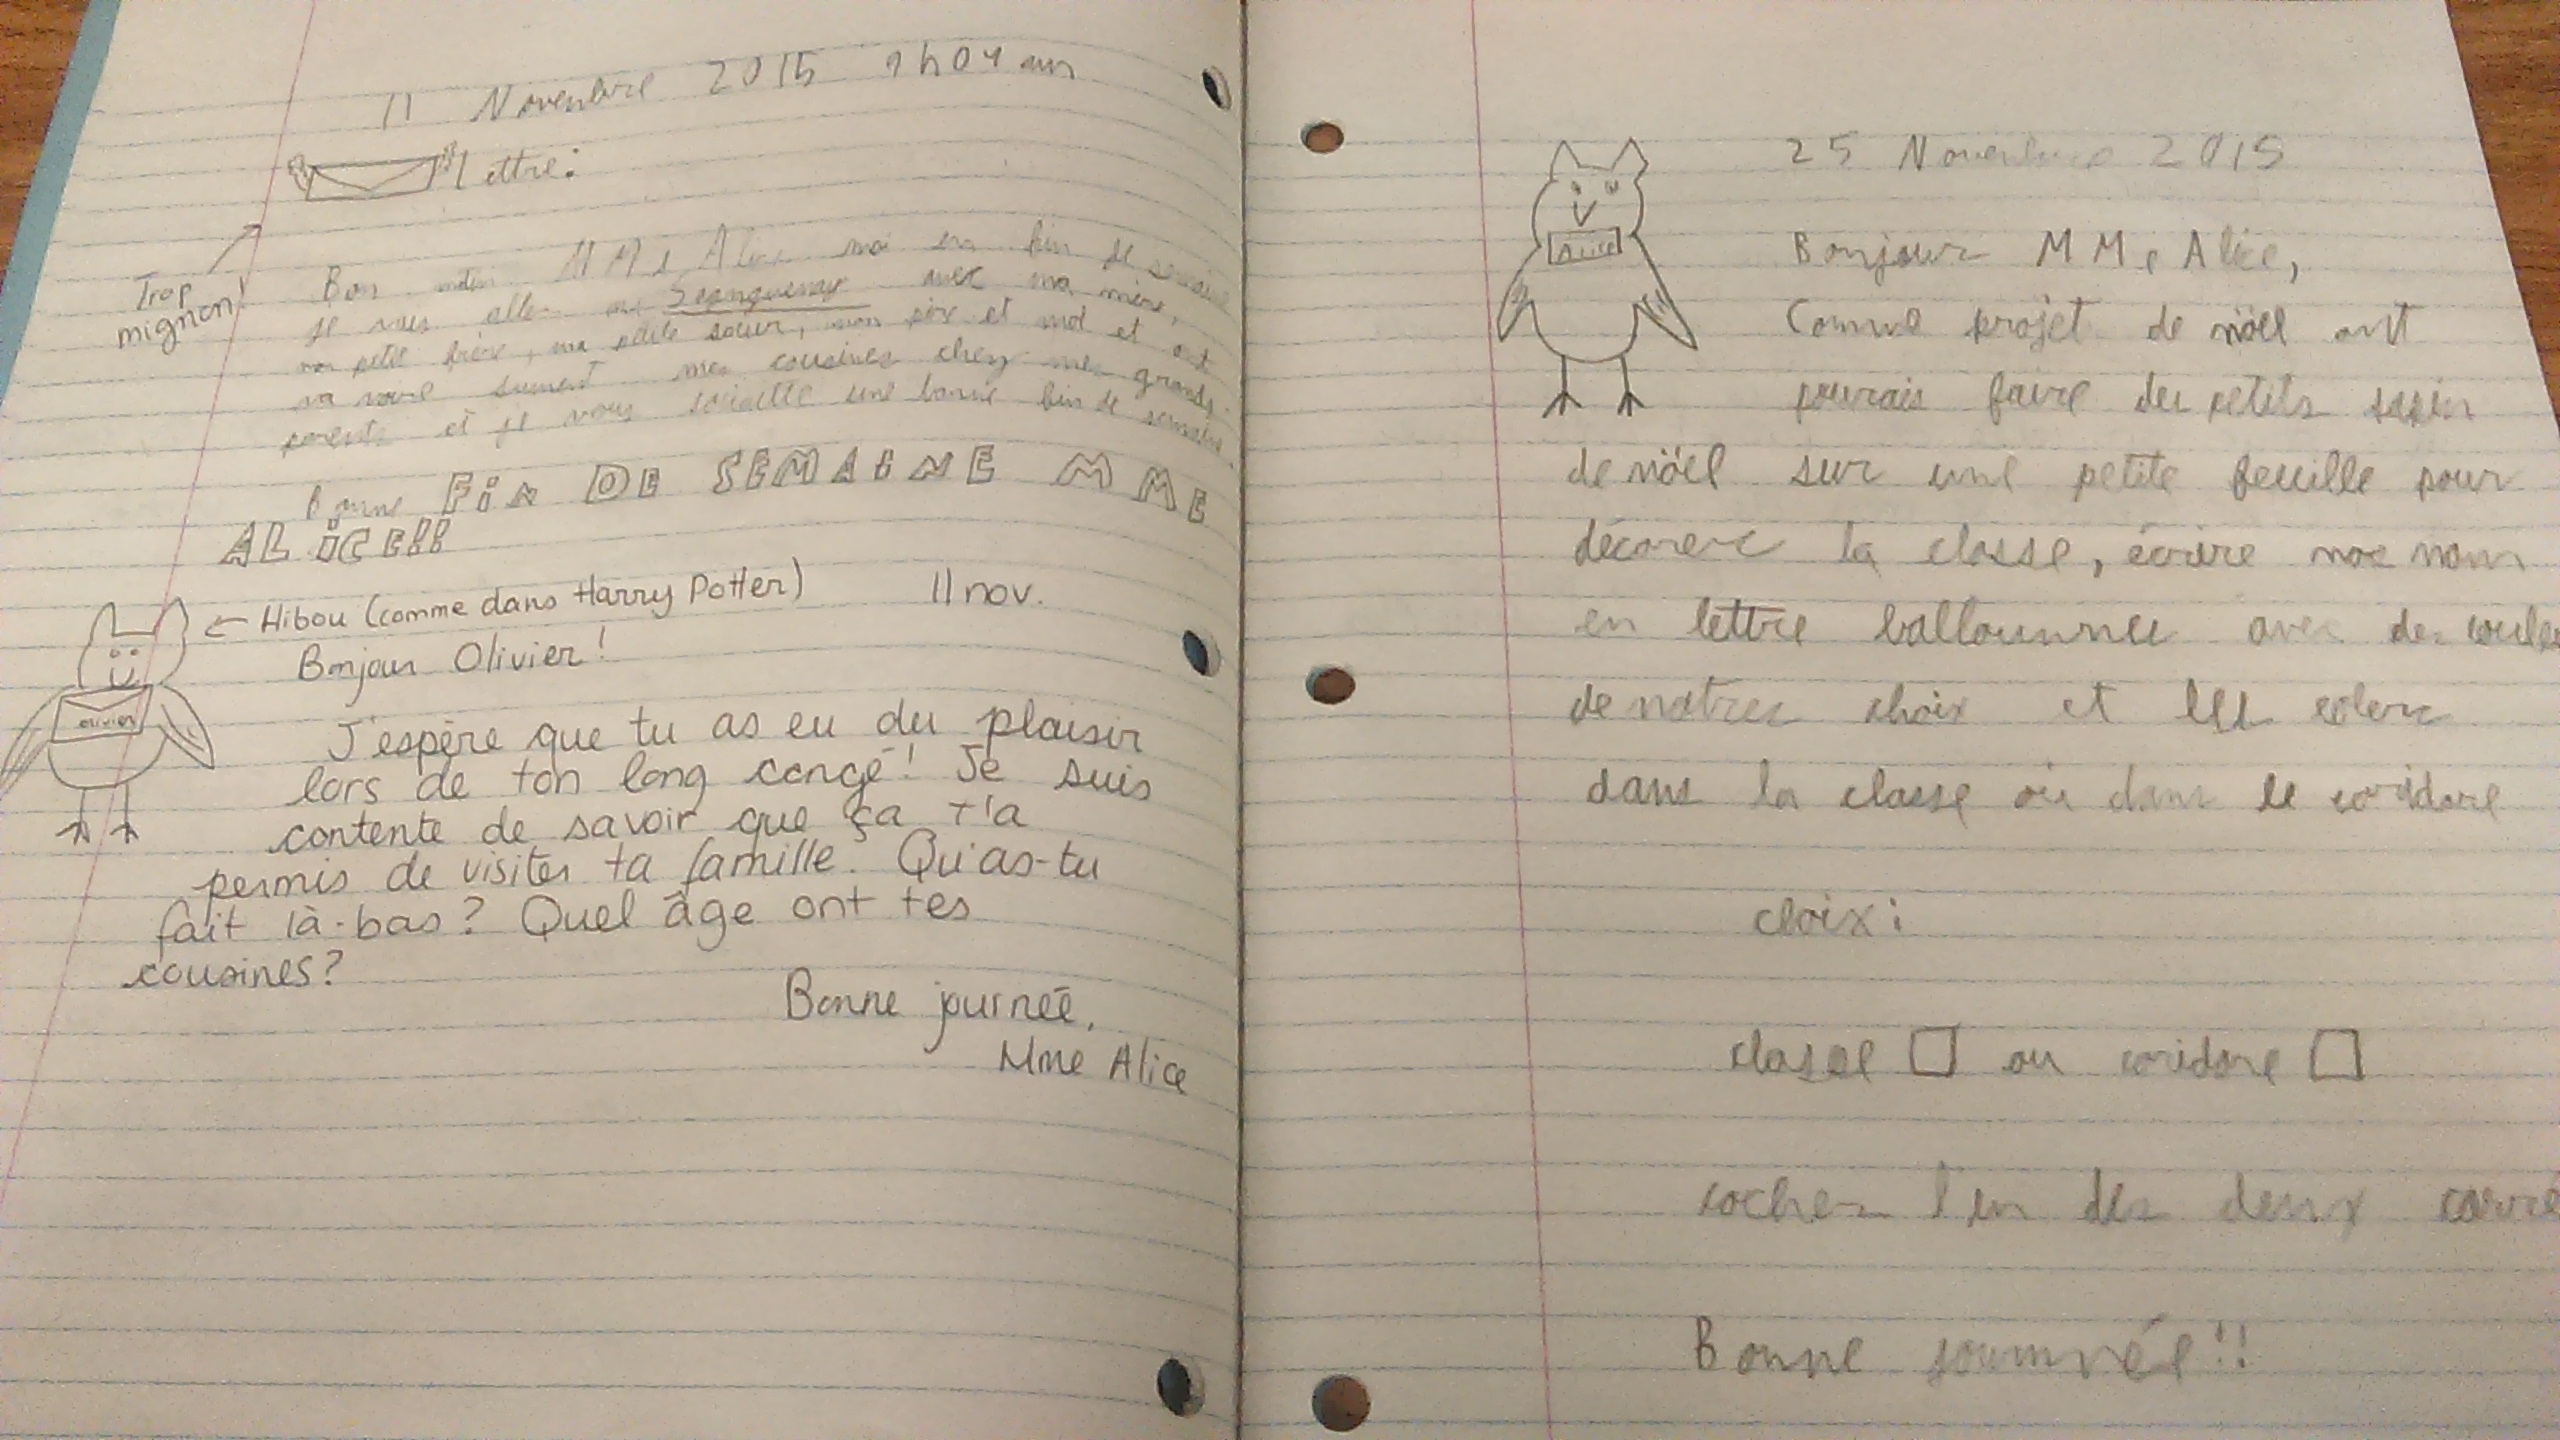 11 Novembre 2015 9h04 am
lettre:
Trop
mignon!
Bon matin MMe Alice moi en fin de semaine
je vais aller au Seanguenay avec ma mère,
mon petit frère, ma petite soeur, mon père et moi et ont
va voire surment mes cousines chez mes grands-
parents et je vous souaitte une bonne fin de semaine
Bonne FiN DE SEMAINE MME
ALiCE!!
← Hibou (comme dans Harry Potter) 11 nov.
Bonjour Olivier!
olivier
J'espère que tu as eu du plaisir
lors de ton long congé! Je suis
contente de savoir que ça t'a
permis de visiter ta famille. Qu'as-tu
fait là-bas? Quel âge ont tes
cousines?
Bonne journée,
Mme Alice
25 Novembre 2015
Alice
Bonjour MMe Alice,
Comme projet de nöel ont
pourais faire des petits sapin
de nöel sur une petite feuille pour
décorer la classe, écrire nos nom
en lettre ballounnee avec des
de notres choix et les coler
dans la classe ou dans le coridore
choix:
classe □ ou coridore □
cocher l'un des deux carré
Bonne journée!!